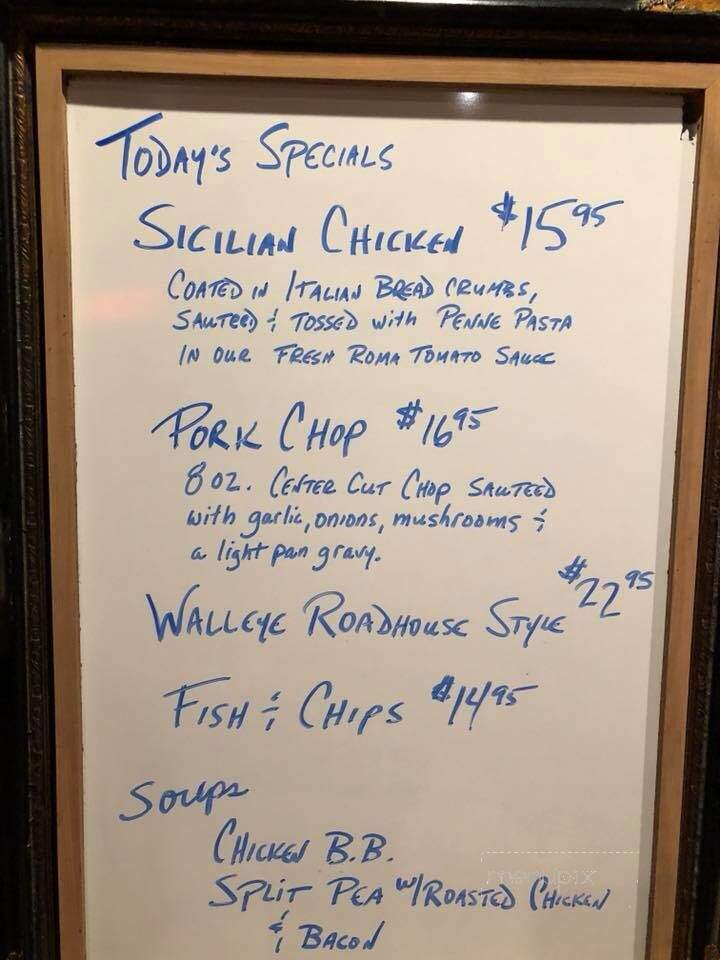 TODAY'S SPECIALS
SICILIAN CHICKEN $15.95
COATED IN ITALIAN BREAD CRUMBS,
SAUTEED & TOSSED with PENNE PASTA
IN OUR FRESH ROMA TOMATO SAUCE
PORK CHOP $16.95
8 OZ. CENTER CUT CHOP SAUTEED
with garlic, onions, mushrooms &
a light pan gravy.
WALLEYE ROADHOUSE STYLE $22.95
FISH & CHIPS $14.95
Soups
CHICKEN B.B.
SPLIT PEA W/ROASTED CHICKEN
& BACON